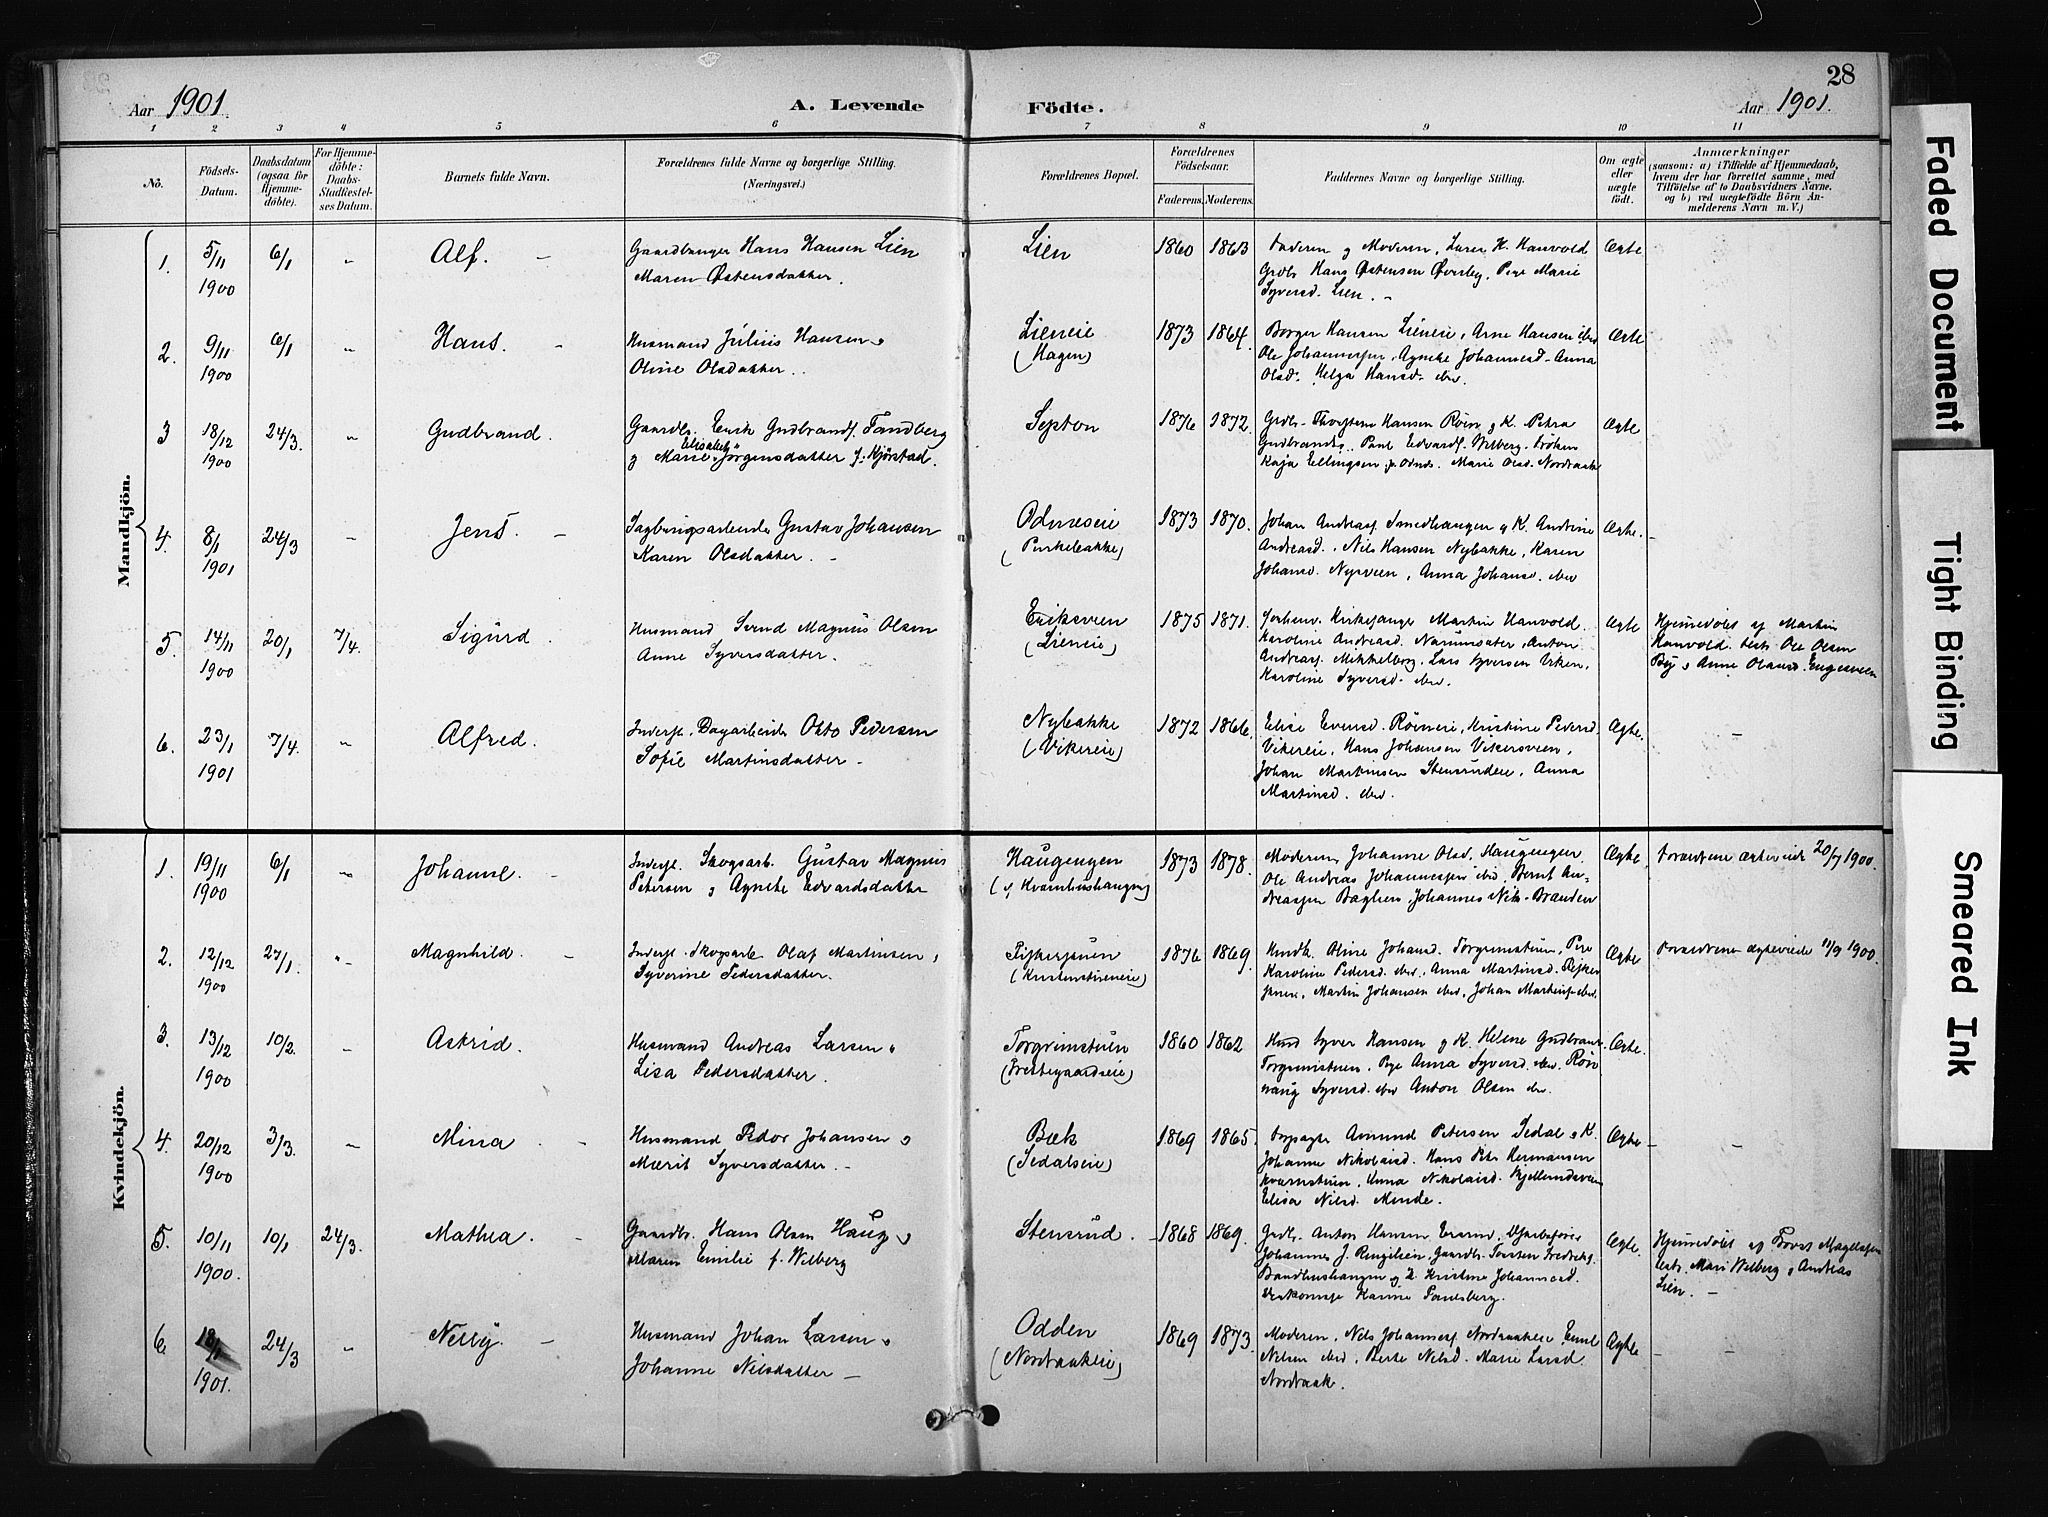 28
Aar 1901.
A. Levende
Födte.
Aar 1901.
1 2 3 4 5 6 7 8 9 10 11
No.
Födsels-Datum.
Daabsdatum (ogsaa for Hjemmedöbte).
For Hjemmedöbte: Daabs-Stadfæstelses Datum.
Barnets fulde Navn.
Forældrenes fulde Navne og borgerlige Stilling.
(Næringsvei.)
Forældrenes Bopæl.
Forældrenes Födselsaar.
Faderens. Moderens.
Faddernes Navne og borgerlige Stilling.
Om ægte eller uægte födt.
Anmærkninger
(saasom: a) i Tilfælde af Hjemmedaab,
hvem der har forrettet samme, med
Tilföielse af to Daabsvidners Navne.
og b) ved uægtefödte Börn An-
melderens Navn m.V.)
Mandkjön.
1. 5/11 1900 6/1 " Alf. -
Gaardbruger Hans Hansen Lien
Maren Østensdatter.
Lien 1860 1863
Faderen og Moderen, Lærer H. Hanvold
Grdbr Hans Østensen Øverby, Pige Marie
Syversd. Lien. -
Ægte
2. 9/11 1900 6/1 " Hans. -
Husmand Julius Hansen &
Oline Olsdatter.
Lieneie (Hagen) 1873 1864.
Borger Hansen Lieneie, Arne Hansen ibid
Ole Johannessen, Agnethe Johannesd. Anna
Olsd. Helga Hansd. ibid.
Ægte
3 18/12 1900 24/3. " Gudbrand.
Gaardbr. Erik Gudbrands. Tandberg
Elisabeth
og Marie Jørgensdatter f. Kjørstad.
Septon 1876 1872.
Grdbr. Thorstein Hansen Røien og K. Petra
Gudbrandsd. Paul Edvards. Wilberg, Frøken
Kaja Ellingsen, Marie Olsd. Nordraak
Ægte
4. 8/1 1901 24/3 " Jens. -
Sagbrugsarbeider Gustav Johansen
Karen Olsdatter. -
Odneseie (Purkebakke) 1873 1870.
Johan Andreas. Smedhaugen og K. Andrine
Andreasd., Nils Hansen Nybakke, Karen
Johansd. Nysveen, Anna Johansd. ibid
Ægte. -
5. 14/11 1900 20/1 7/4. Sigurd -
Husmand Svend Magnus Olsen
Anne Syversdatter.
Eriksveen (Lieneie) 1875 1871.
Forhenv. Kirkesanger Martin Hanvold.
Karoline Andreasd. Narumsæter, Anton
Andreas. Mikkelborg, Lars Syversen Viken,
Karoline Syversd. ibid.
Ægte
Hjemmedøbt af Martin
Hanvold. test: Ole Olsen
By & Anne Olausd. Engesveen
6. 23/1 1901 7/4. " Alfred.
Inderst. Dagarbeider Otto Pedersen
Sofie Martinsdatter -
Nybakke (Vikereie) 1872 1866.
Elise Evensd. Røineie, Kristine Pedersd.
Vikereie, Hans Johansen Vikersveen,
Johan Martinsen Stensrudeie, Anna
Martinsd. ibid.
Ægte. -
Kvindekjön.
1. 19/11 1900 6/1 " Johanne. -
Inderst. Skogsarb. Gustav Magnus
Petersen & Agnethe Edvardsdatter
Haugengen (v. Kvernhushaugen) 1873 1878.
Moderen, Johanne Olsd. Haugengen
Ole Andreas Johannessen ibid, Bernt An-
dreassen Baglien, Johannes Nils. Branden
Ægte
Forældrene ægteviede 20/7 1900.
2. 12/12 1900 27/1. " Magnhild. -
Inderst. Skogsarb. Olaf Martinsen,
Syverine Pedersdatter.
(Kristenstueneie) 1876 1869.
Husmk. Oline Johansd. Torgrimstuen, Pige
Karoline Pedersd. ibid, Anna Martinsd.
Martin Johansen ibid, Johan Martins. ibid.
Ægte
Forældrene ægteviede 11/9 1900.
3. 13/12 1900 10/2. " Astrid.
Husmand Andreas Larsen "
Lisa Pedersdatter.
Torgrimstuen (Præstegaardseie) 1860 1862
Husmd Syver Hansen og K. Helene Gudbrands.
Torgrimstuen, Pige Anna Syversd. ibid. Røn-
naug Syversd. ibid Anton Olsen ibid.
Ægte.
4. 20/12 1900 3/3. " Mina -
Husmand Peder Johansen &
Marit Syversdatter. -
Bæk (Sedalseie) 1869 1865.
Forpagter Amund Petersen Sedal & K.
Johanne Nikolaisd. Hans Peter Hermansen
Kværnstuen, Anna Nikolaisd. Kjellerudsveen
Elisa Nilsd. Minde.
Ægte - -
5. 10/11 1900. 10/1 24/3. Mathea. -
Gaardbr. Hans Olsen Haug &
Maren Emilie f. Wilberg
Stensrud. - 1868 1869.
Grdbr. Anton Hansen
Johannes J. Ringelien, Gaardbr. Torsten Fredriks.
Baadhushaugen og K. Kristine Johannesd.
Hanna Tandberg.
Ægte.
Hjemmedøbt af
test. Mari Wilberg, Andreas
Lien. -
6. 18/1 1901. 24/3 " Nelly -
Husmand Johan Larsen &
Johanne Nilsdatter -
Odden (Nordraakeie) 1869 1873.
Moderen, Nils Johannes. Nordraakeie Emil
Nilsen ibid, Berte Nilsd. Marie Larsd.
Nordraak.
Ægte - -
Faded Document
Tight Binding
Smeared Ink